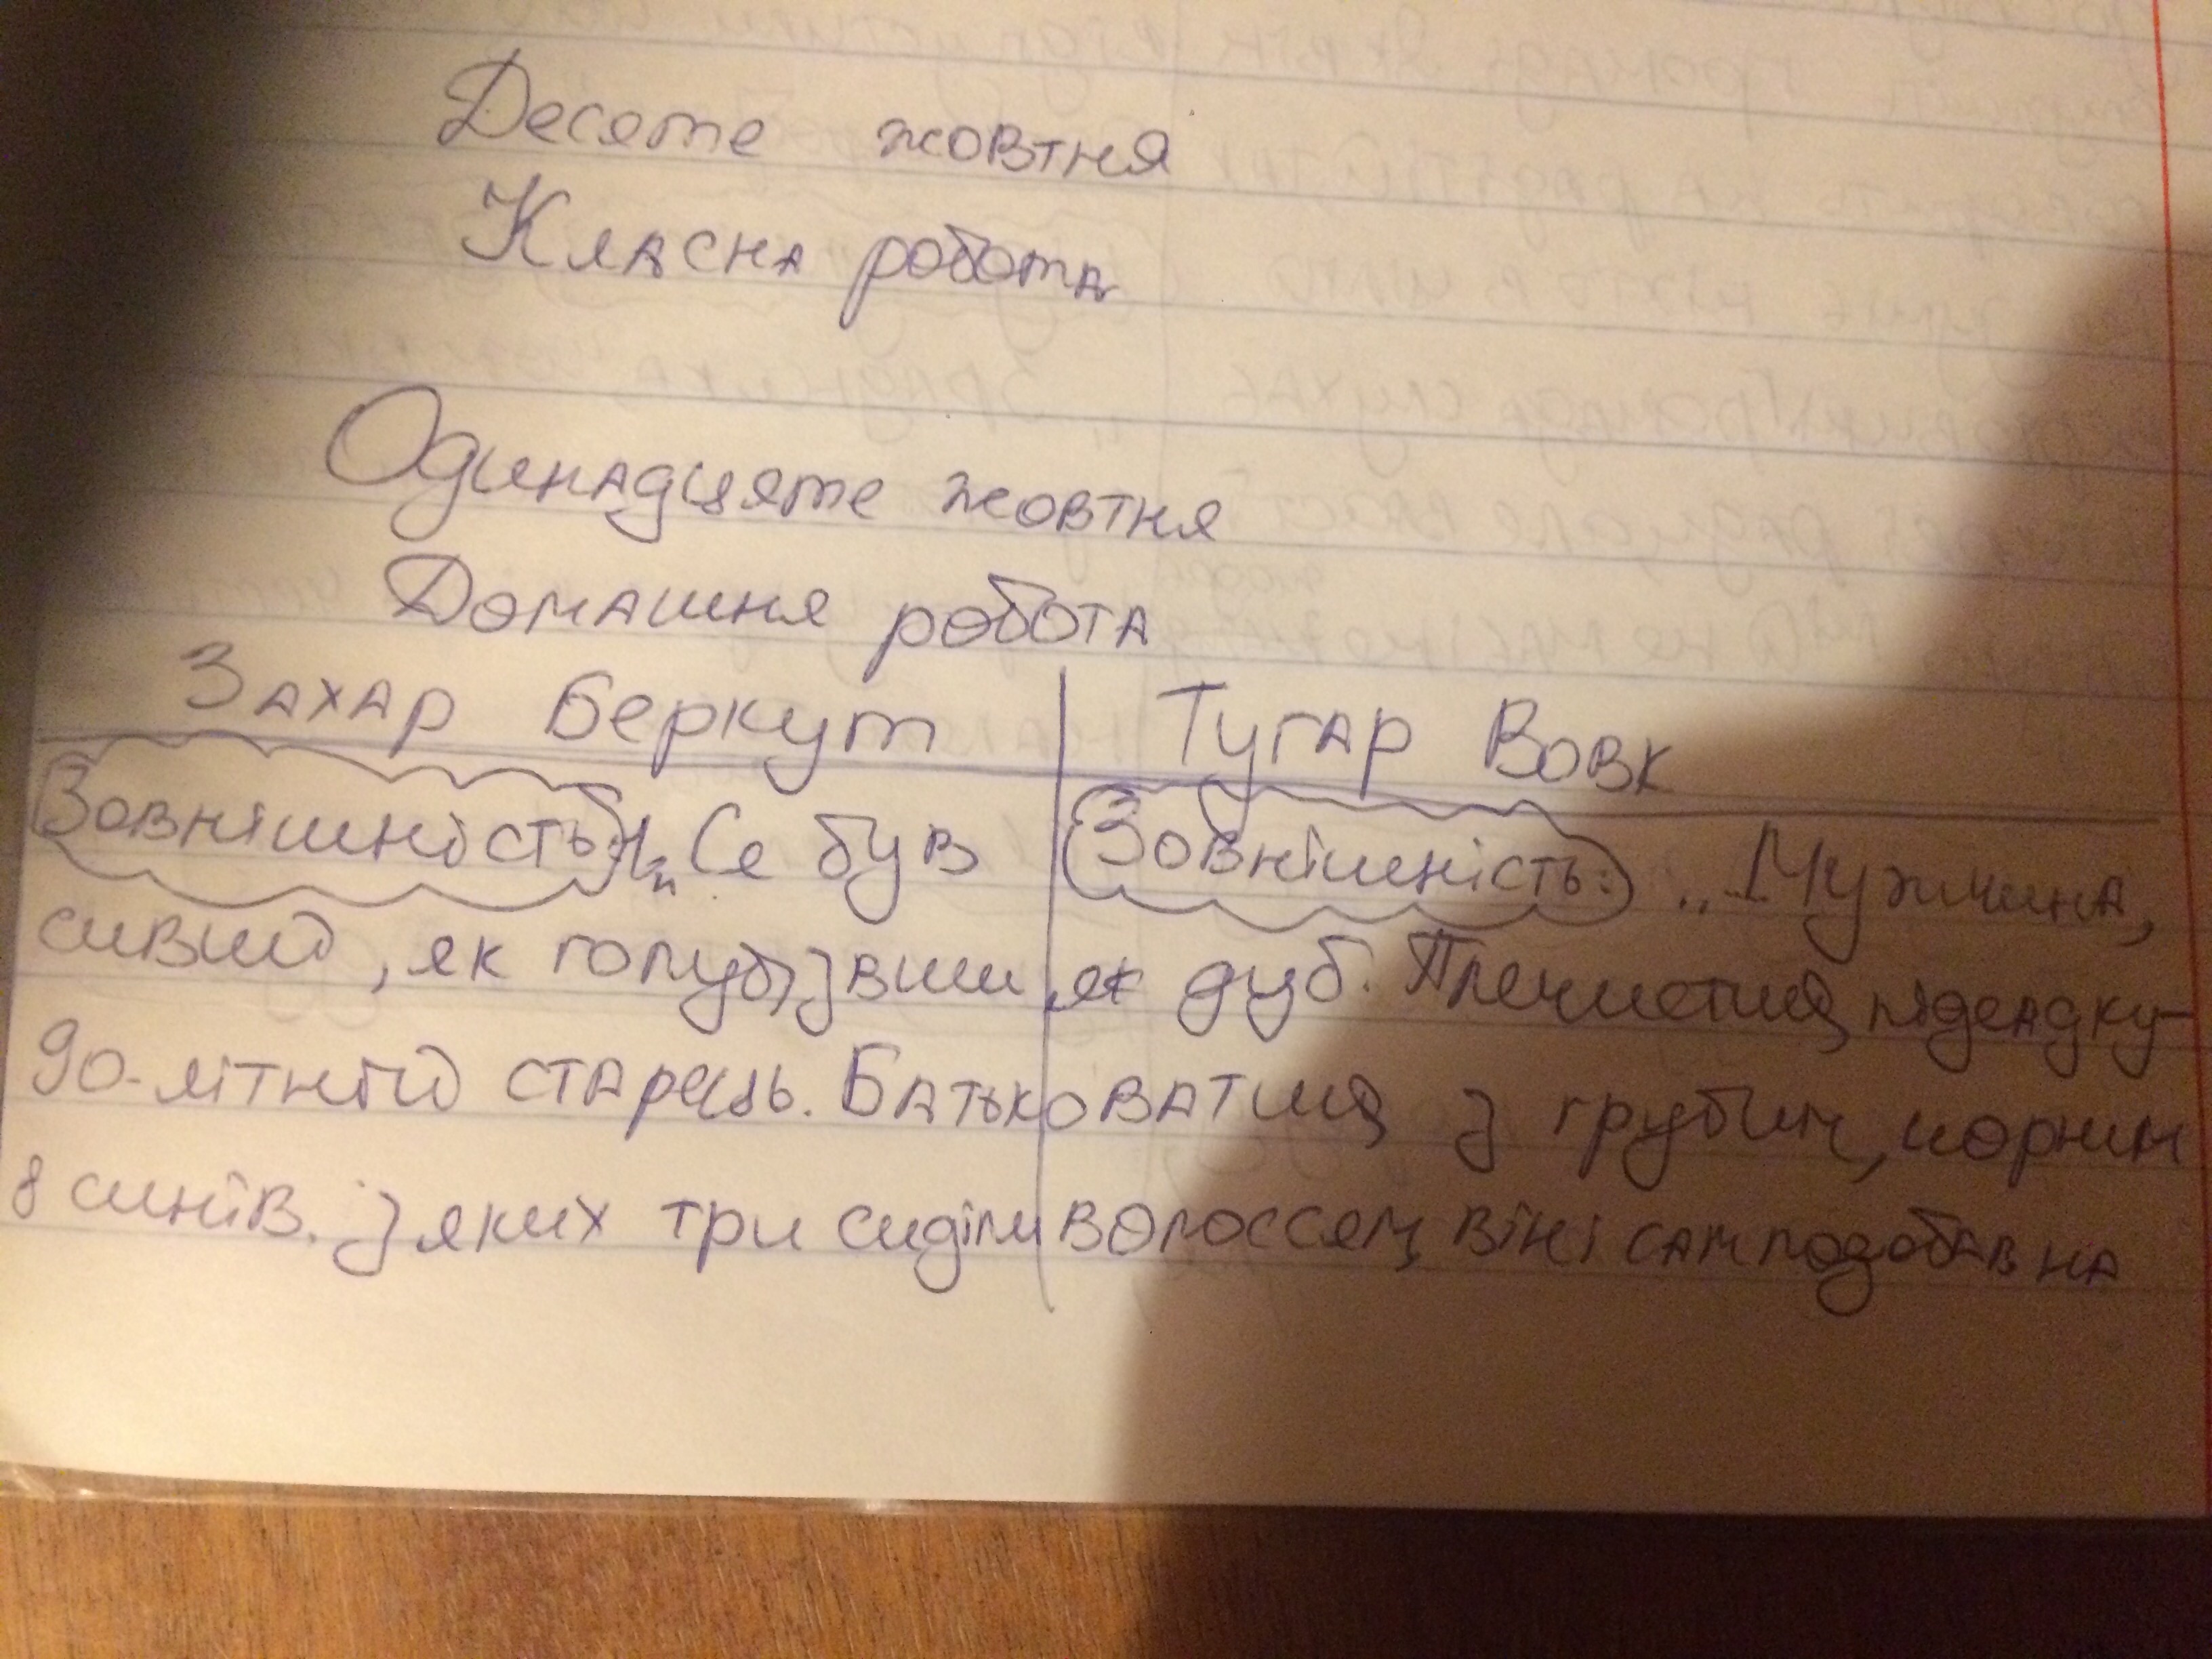 Десяте жовтня
Класна робота
Одинадцяте жовтня
Домашня робота
Захар Беркут
Зовнішність: „Се був
сивий, як голуб, звиш
90-літній старець. Батько
8 синів. З яких три сиділи
Тугар Вовк
Зовнішність: „Мужчина,
як дуб. Плечистий, підсадку-
ватий з грубим, чорним
волоссям, він і сам подобав на